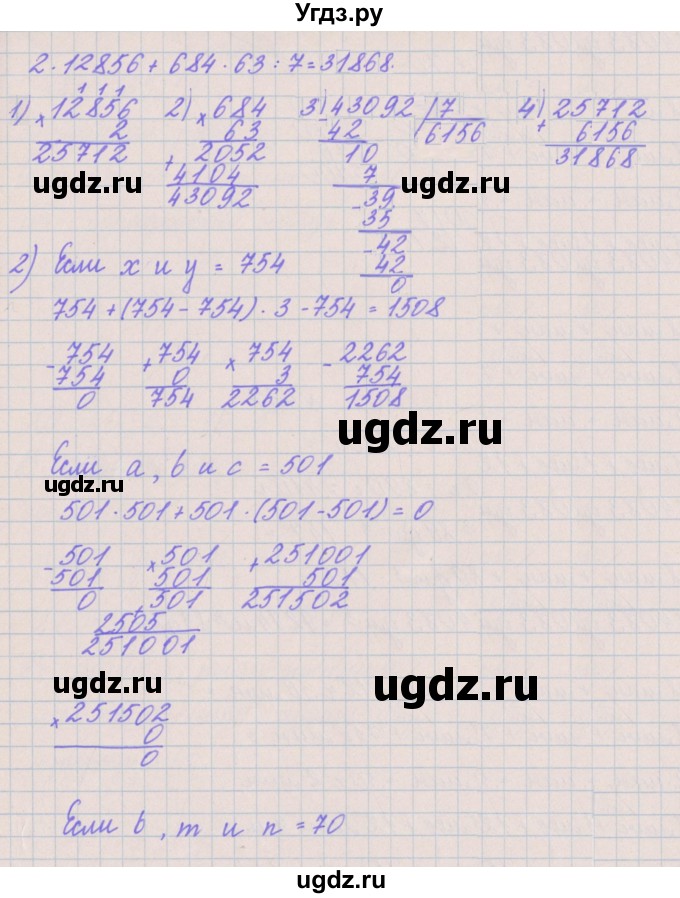 Угдз.ру
2·12856+684·63:7=31868.
1 1 1
1) ×12856 2) ×684 3) -43092 | 7 4) +25712
2 63 42 6156 6156
25712 +2052 10 31868
4104 7
43092 -39
35
-42
42
0
ugdz.ru ugdz.ru ugdz.ru
2) Если x и y = 754
754+(754-754)·3-754=1508
-754 +754 ×754 -2262
754 0 3 754
0 754 2262 1508
ugdz.ru
Если a, b и c = 501
ugdz.ru
501·501+501·(501-501)=0
-501 ×501 +251001
501 501 501
0 +501 251502
2505
251001
ugdz.ru ugdz.ru
×251502
0
0
Если b, m и n = 70
ugdz.ru